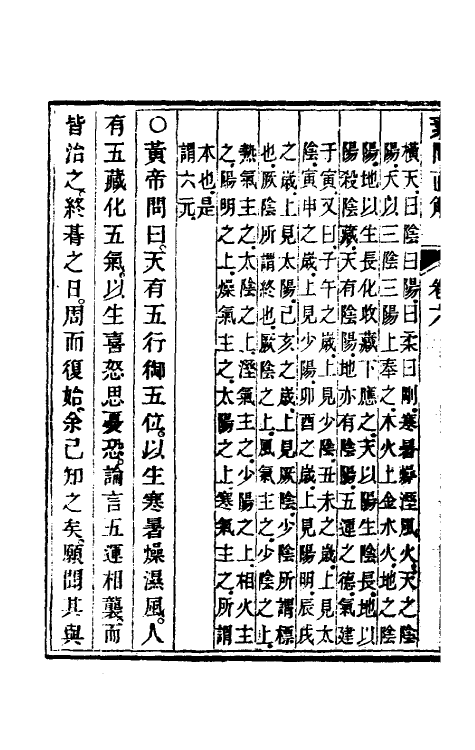 素問直解 卷六
橫天曰陰曰陽曰柔曰剛寒暑燥溼風火天之陰
陽天以三陰三陽上奉之木火土金水火地之陰
陽地以生長化收藏下應之天以陽生陰長地以
陽殺陰藏天有陰陽地亦有陰陽五運之德氣建
于寅又曰子午之歲上見少陰丑未之歲上見太
陰寅申之歲上見少陽卯酉之歲上見陽明辰戌
之歲上見太陽己亥之歲上見厥陰少陰所謂標
也厥陰所謂終也厥陰之上風氣主之少陰之上
熱氣主之太陰之上溼氣主之少陽之上相火主
之陽明之上燥氣主之太陽之上寒氣主之所謂
本也是
謂六元
○黃帝問曰天有五行御五位以生寒暑燥濕風人
有五藏化五氣以生喜怒思憂恐論言五運相襲而
皆治之終朞之日周而復始余已知之矣願聞其與